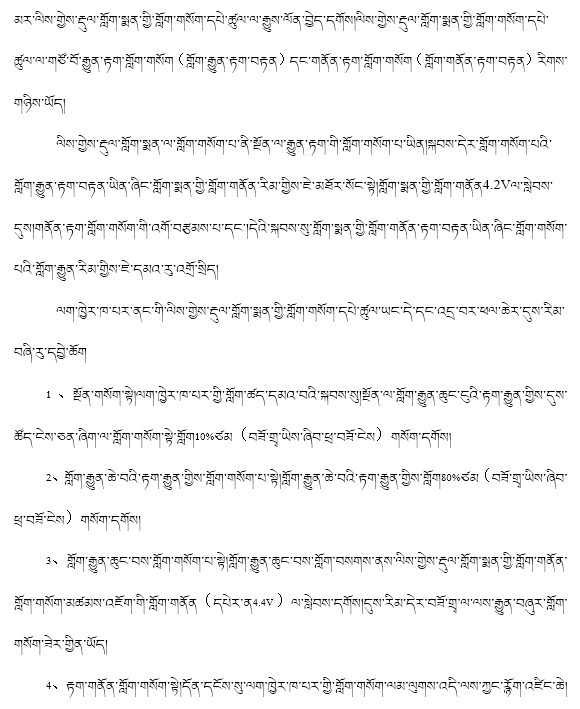 མར་ལིས་གྱེས་རྡུལ་གློག་སྨན་གྱི་གློག་གསོག་དཔེ་ཚུལ་ལ་རྒྱུས་ལོན་བྱེད་དགོས།ལིས་གྱེས་རྡུལ་གློག་སྨན་གྱི་གློག་གསོག་དཔེ་
ཚུལ་ལ་གཙོ་བོ་རྒྱུན་རྟག་གློག་གསོག (གློག་རྒྱུན་རྟག་བརྟན) དང་གནོན་རྟག་གློག་གསོག (གློག་གནོན་རྟག་བརྟན) རིགས་
གཉིས་ཡོད།
ལིས་གྱེས་རྡུལ་གློག་སྨན་ལ་གློག་གསོག་པ་ནི་སྔོན་ལ་རྒྱུན་རྟག་གི་གློག་གསོག་པ་ཡིན།སྐབས་དེར་གློག་གསོག་པའི་
གློག་རྒྱུན་རྟག་བརྟན་ཡིན་ཞིང་གློག་སྨན་གྱི་གློག་གནོན་རིམ་གྱིས་ཇེ་མཐོར་སོང་སྟེ།གློག་སྨན་གྱི་གློག་གནོན4.2Vལ་སླེབས་
དུས།གནོན་རྟག་གློག་གསོག་གི་འགོ་བརྩམས་པ་དང་།དེའི་སྐབས་སུ་གློག་སྨན་གྱི་གློག་གནོན་རྟག་བརྟན་ཡིན་ཞིང་གློག་གསོག་
པའི་གློག་རྒྱུན་རིམ་གྱིས་ཇེ་དམའ་རུ་འགྲོ་སྲིད།
ལག་ཁྱེར་ཁ་པར་ནང་གི་ལིས་གྱེས་རྡུལ་གློག་སྨན་གྱི་གློག་གསོག་དཔེ་ཚུལ་ཡང་དེ་དང་འདྲ་བར་ཕལ་ཆེར་དུས་རིམ་
བཞི་རུ་དབྱེ་ཆོག
1 、 སྔོན་གསོག་སྟེ།ལག་ཁྱེར་ཁ་པར་གྱི་གློག་ཚད་དམའ་བའི་སྐབས་སུ།སྔོན་ལ་གློག་རྒྱུན་ཆུང་ངུའི་རྟག་རྒྱུན་གྱིས་དུས་
ཚོད་ངེས་ཅན་ཞིག་ལ་གློག་གསོག་སྟེ་གློག10%ཙམ (བཟོ་གྲྭ་ཡིས་ཞིབ་ཕྲ་བཟོ་ངེས) གསོག་དགོས།
2、གློག་རྒྱུན་ཆེ་བའི་རྟག་རྒྱུན་གྱིས་གློག་གསོག་པ་སྟེ།གློག་རྒྱུན་ཆེ་བའི་རྟག་རྒྱུན་གྱིས་གློག80%ཙམ (བཟོ་གྲྭ་ཡིས་ཞིབ་
ཕྲ་བཟོ་ངེས) གསོག་དགོས།
3、 གློག་རྒྱུན་ཆུང་བས་གློག་གསོག་པ་སྟེ།གློག་རྒྱུན་ཆུང་བས་གློག་བསགས་ནས་ལིས་གྱེས་རྡུལ་གློག་སྨན་གྱི་གློག་གནོན་
གློག་གསོག་མཚམས་འཇོག་གི་གློག་གནོན (དཔེར་ན4.4V) ལ་སླེབས་དགོས།དུས་རིམ་དེར་བཟོ་གྲྭ་ལ་ལས་རྒྱུན་བཞུར་གློག་
གསོག་ཟེར་གྱིན་ཡོད།
4、 རྟག་གནོན་གློག་གསོག་སྟེ།དོན་དངོས་སུ་ལག་ཁྱེར་ཁ་པར་གྱི་གློག་གསོག་ལམ་ལུགས་འདི་ལས་ཀྱང་རྙོག་འཛིང་ཆེ།